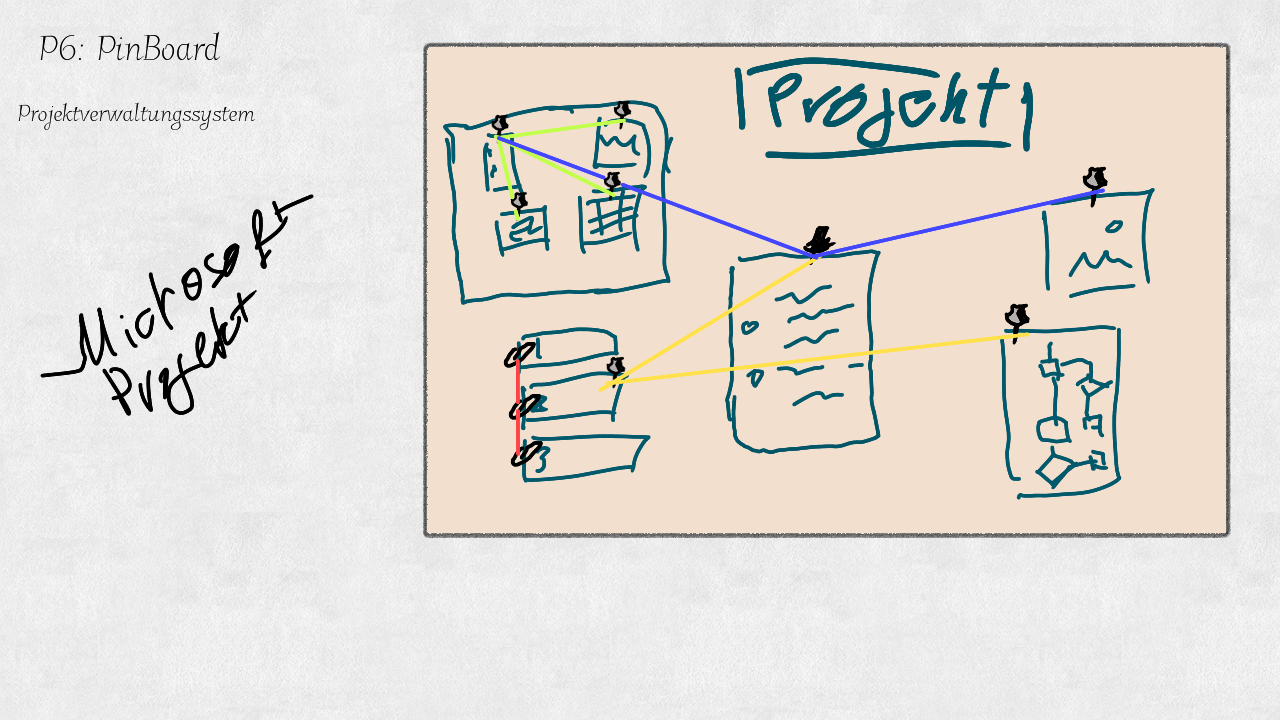 P6: PinBoard
Projektverwaltungssystem
Microsoft
Projekt
Projekt
1
2
3